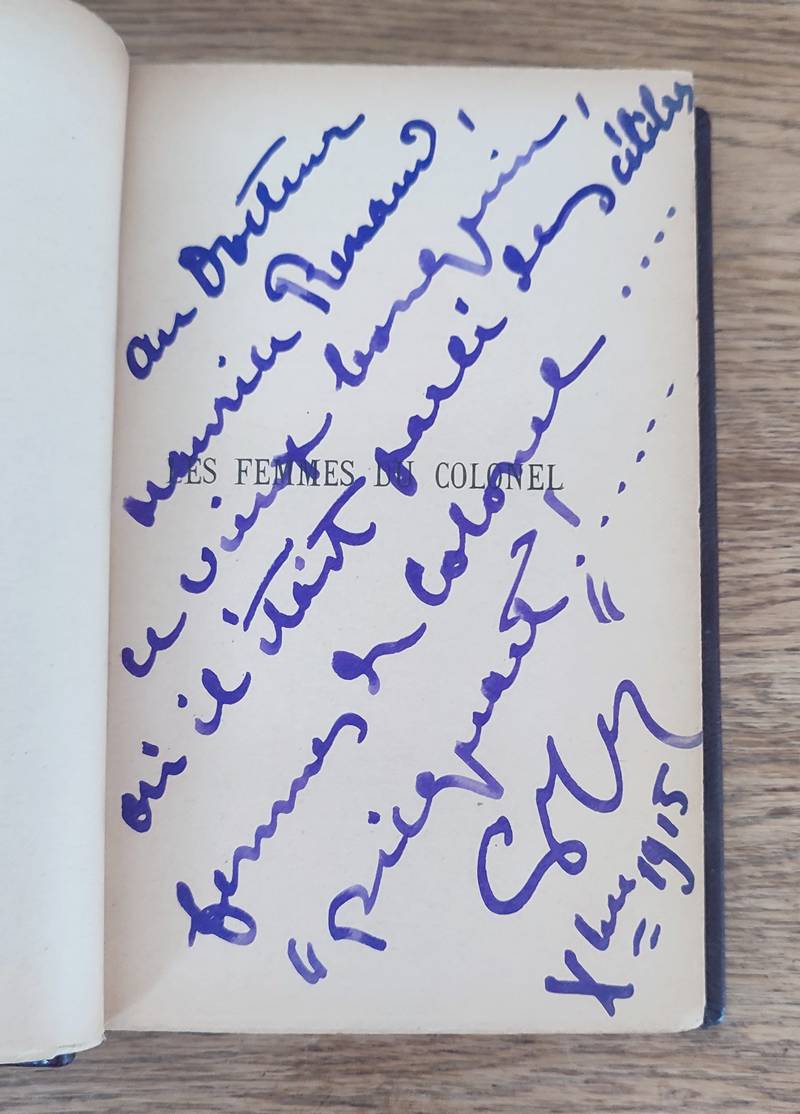 au Docteur
Maurice Renaud!
ce vieux bouquin!
où il était parlé des célèbres
femmes du Colonel ....
"picquart! ......"
LES FEMMES DU COLONEL
Xbre 1915